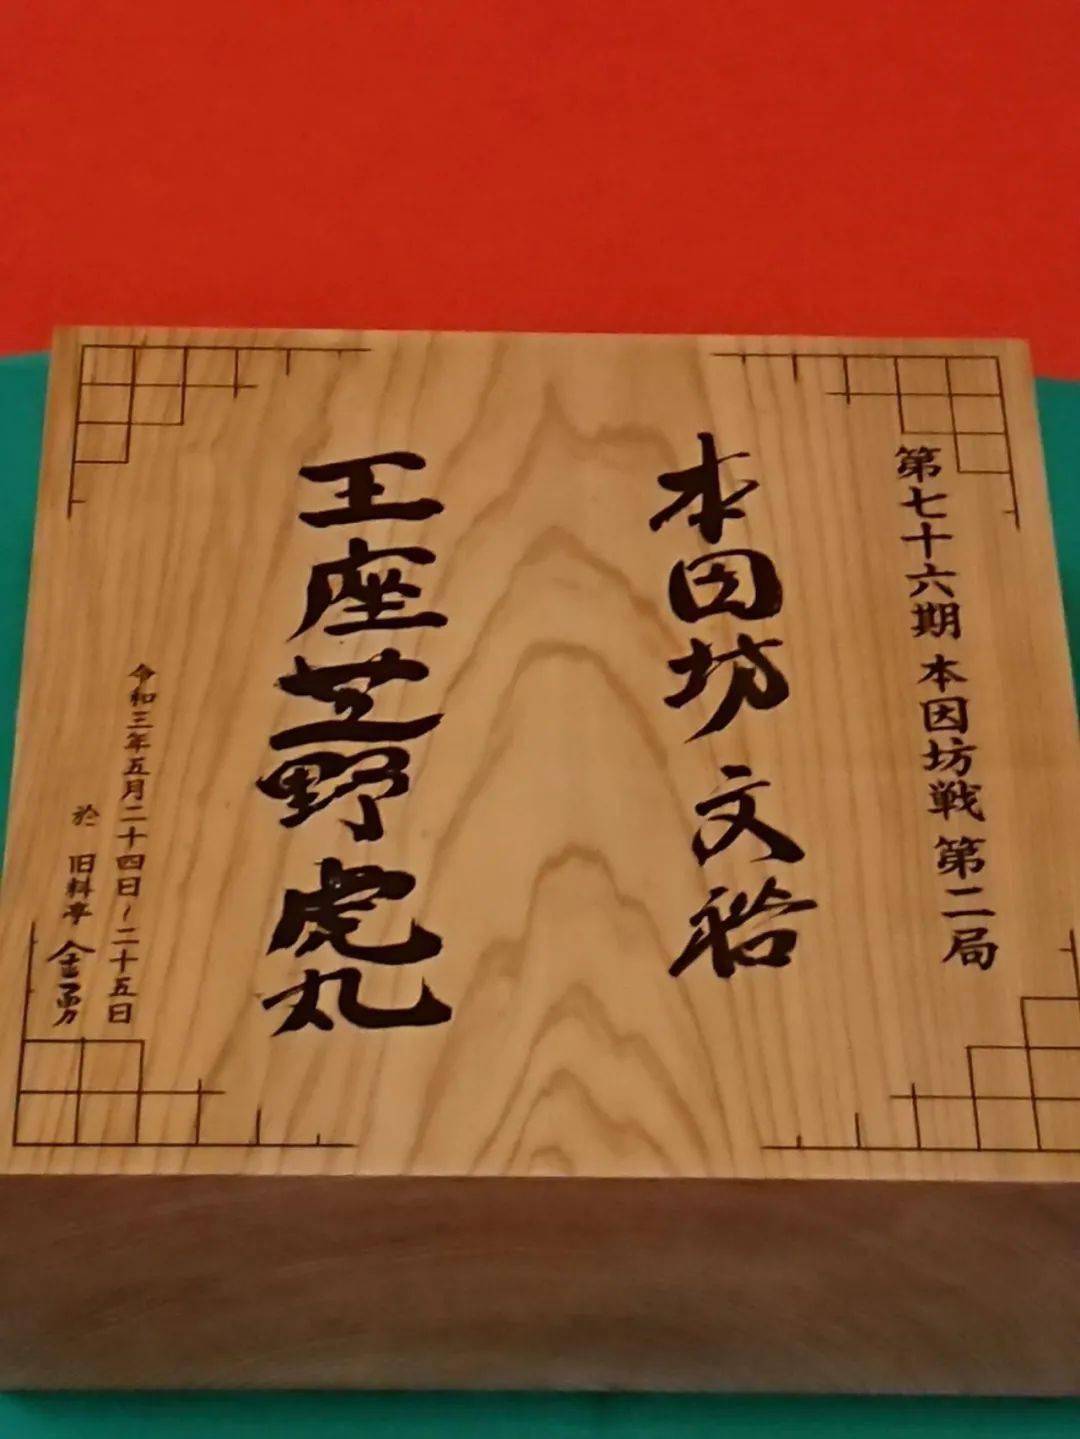 第七十六期 本因坊戦 第二局
本因坊 文裕
王座 芝野虎丸
令和三年五月二十四日～二十五日
於 旧料亭 金勇